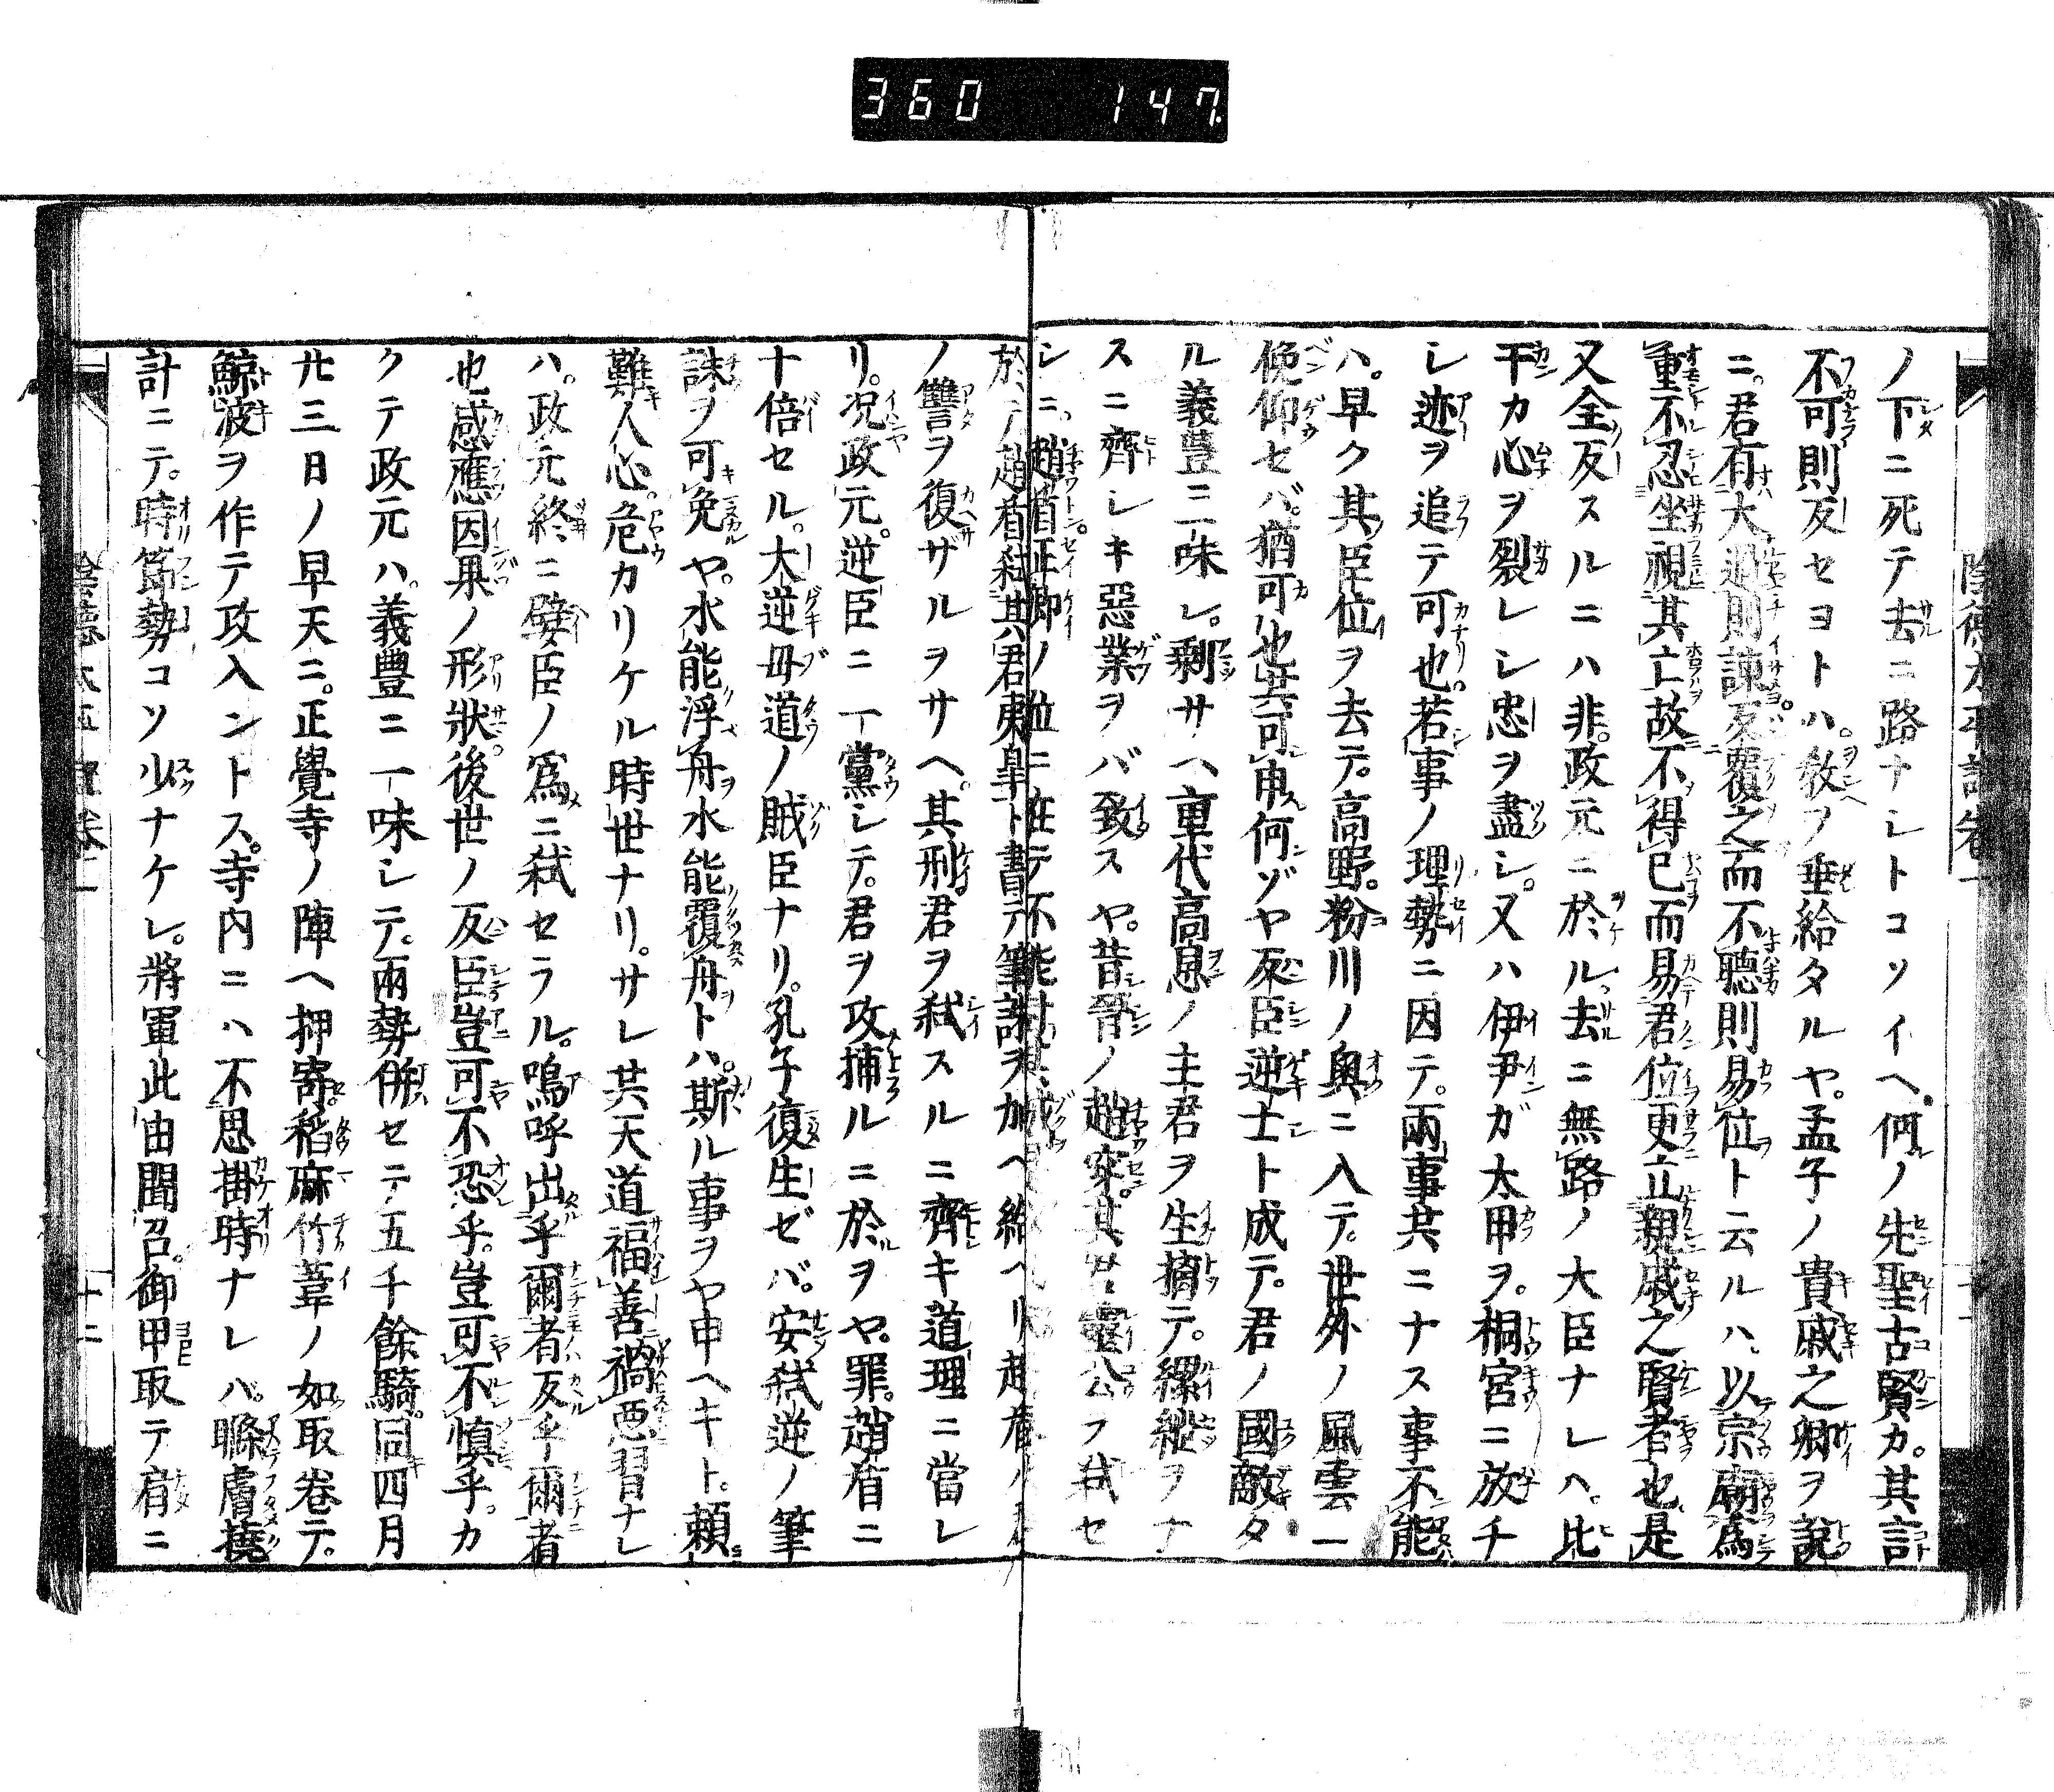 360 147
ノ下ニ死テ去ニ路ナシトコソイヘ何ノ先聖古賢カ其言
不可則反セヨトハ教ヲ垂給タルヤ孟子ノ貴戚之卿ヲ說
ニ君有大過則諫反覆之而不聽則易位ト云ルハ以宗廟爲
重不忍坐視其亡故不得已而易君位更立親戚之賢者也是
又全反スルニハ非政元ニ於ル去ニ無路ノ大臣ナレハ比
干カ心ヲ裂レシ忠ヲ盡シ又ハ伊尹ガ太甲ヲ桐宮ニ放チ
シ迹ヲ追テ可也若事ノ理勢ニ因テ兩事共ニナス事不能
ハ早ク其臣位ヲ去テ高野粉川ノ奧ニ入テ世外ノ風雲ニ
俛仰セバ猶可也其可申何ゾヤ反臣逆士ト成テ君ノ國敵タ
ル義豐ニ一味シ剩サヘ重代高恩ノ主君ヲ生擒テ縲絏ヲナ
スニ齊シキ惡業ヲバ致スヤ昔晉ノ趙穿其君靈公ヲ弑セ
シニ趙盾正卿ノ位ニ在テ不能討其賊
於テ趙盾弑其君夷皐ト書テ筆誅ヲ加ヘ給ヘリ趙盾ハ君
ノ讐ヲ復ザルヲサヘ其刑君ヲ弑スルニ齊キ道理ニ當レ
リ况政元逆臣ニ一黨シテ君ヲ攻捕ルニ於ヲヤ罪趙盾ニ
十倍セル大逆毋道ノ賊臣ナリ孔子復生ゼバ安弑逆ノ筆
誅ヲ可免ヤ水能浮舟水能覆舟トハ斯ル事ヲヤ申ヘキト賴
難人心危カリケル時世ナリサレ共天道福善禍惡習ナレ
ハ政元終ニ嬖臣ノ爲ニ弑セラル嗚呼出乎爾者反乎爾者
也感應因果ノ形狀後世ノ反臣豈可不恐乎豈可不愼乎カ
クテ政元ハ義豐ニ一味シテ兩勢併セテ五千餘騎同四月
廿三日ノ早天ニ正覺寺ノ陣ヘ押寄稻麻竹葦ノ如取卷テ
鯨波ヲ作テ攻入ントス寺内ニハ不思掛時ナレバ膚撓
計ニテ時節勢コソ少ナケレ將軍此由聞召御甲取テ肩ニ
十二